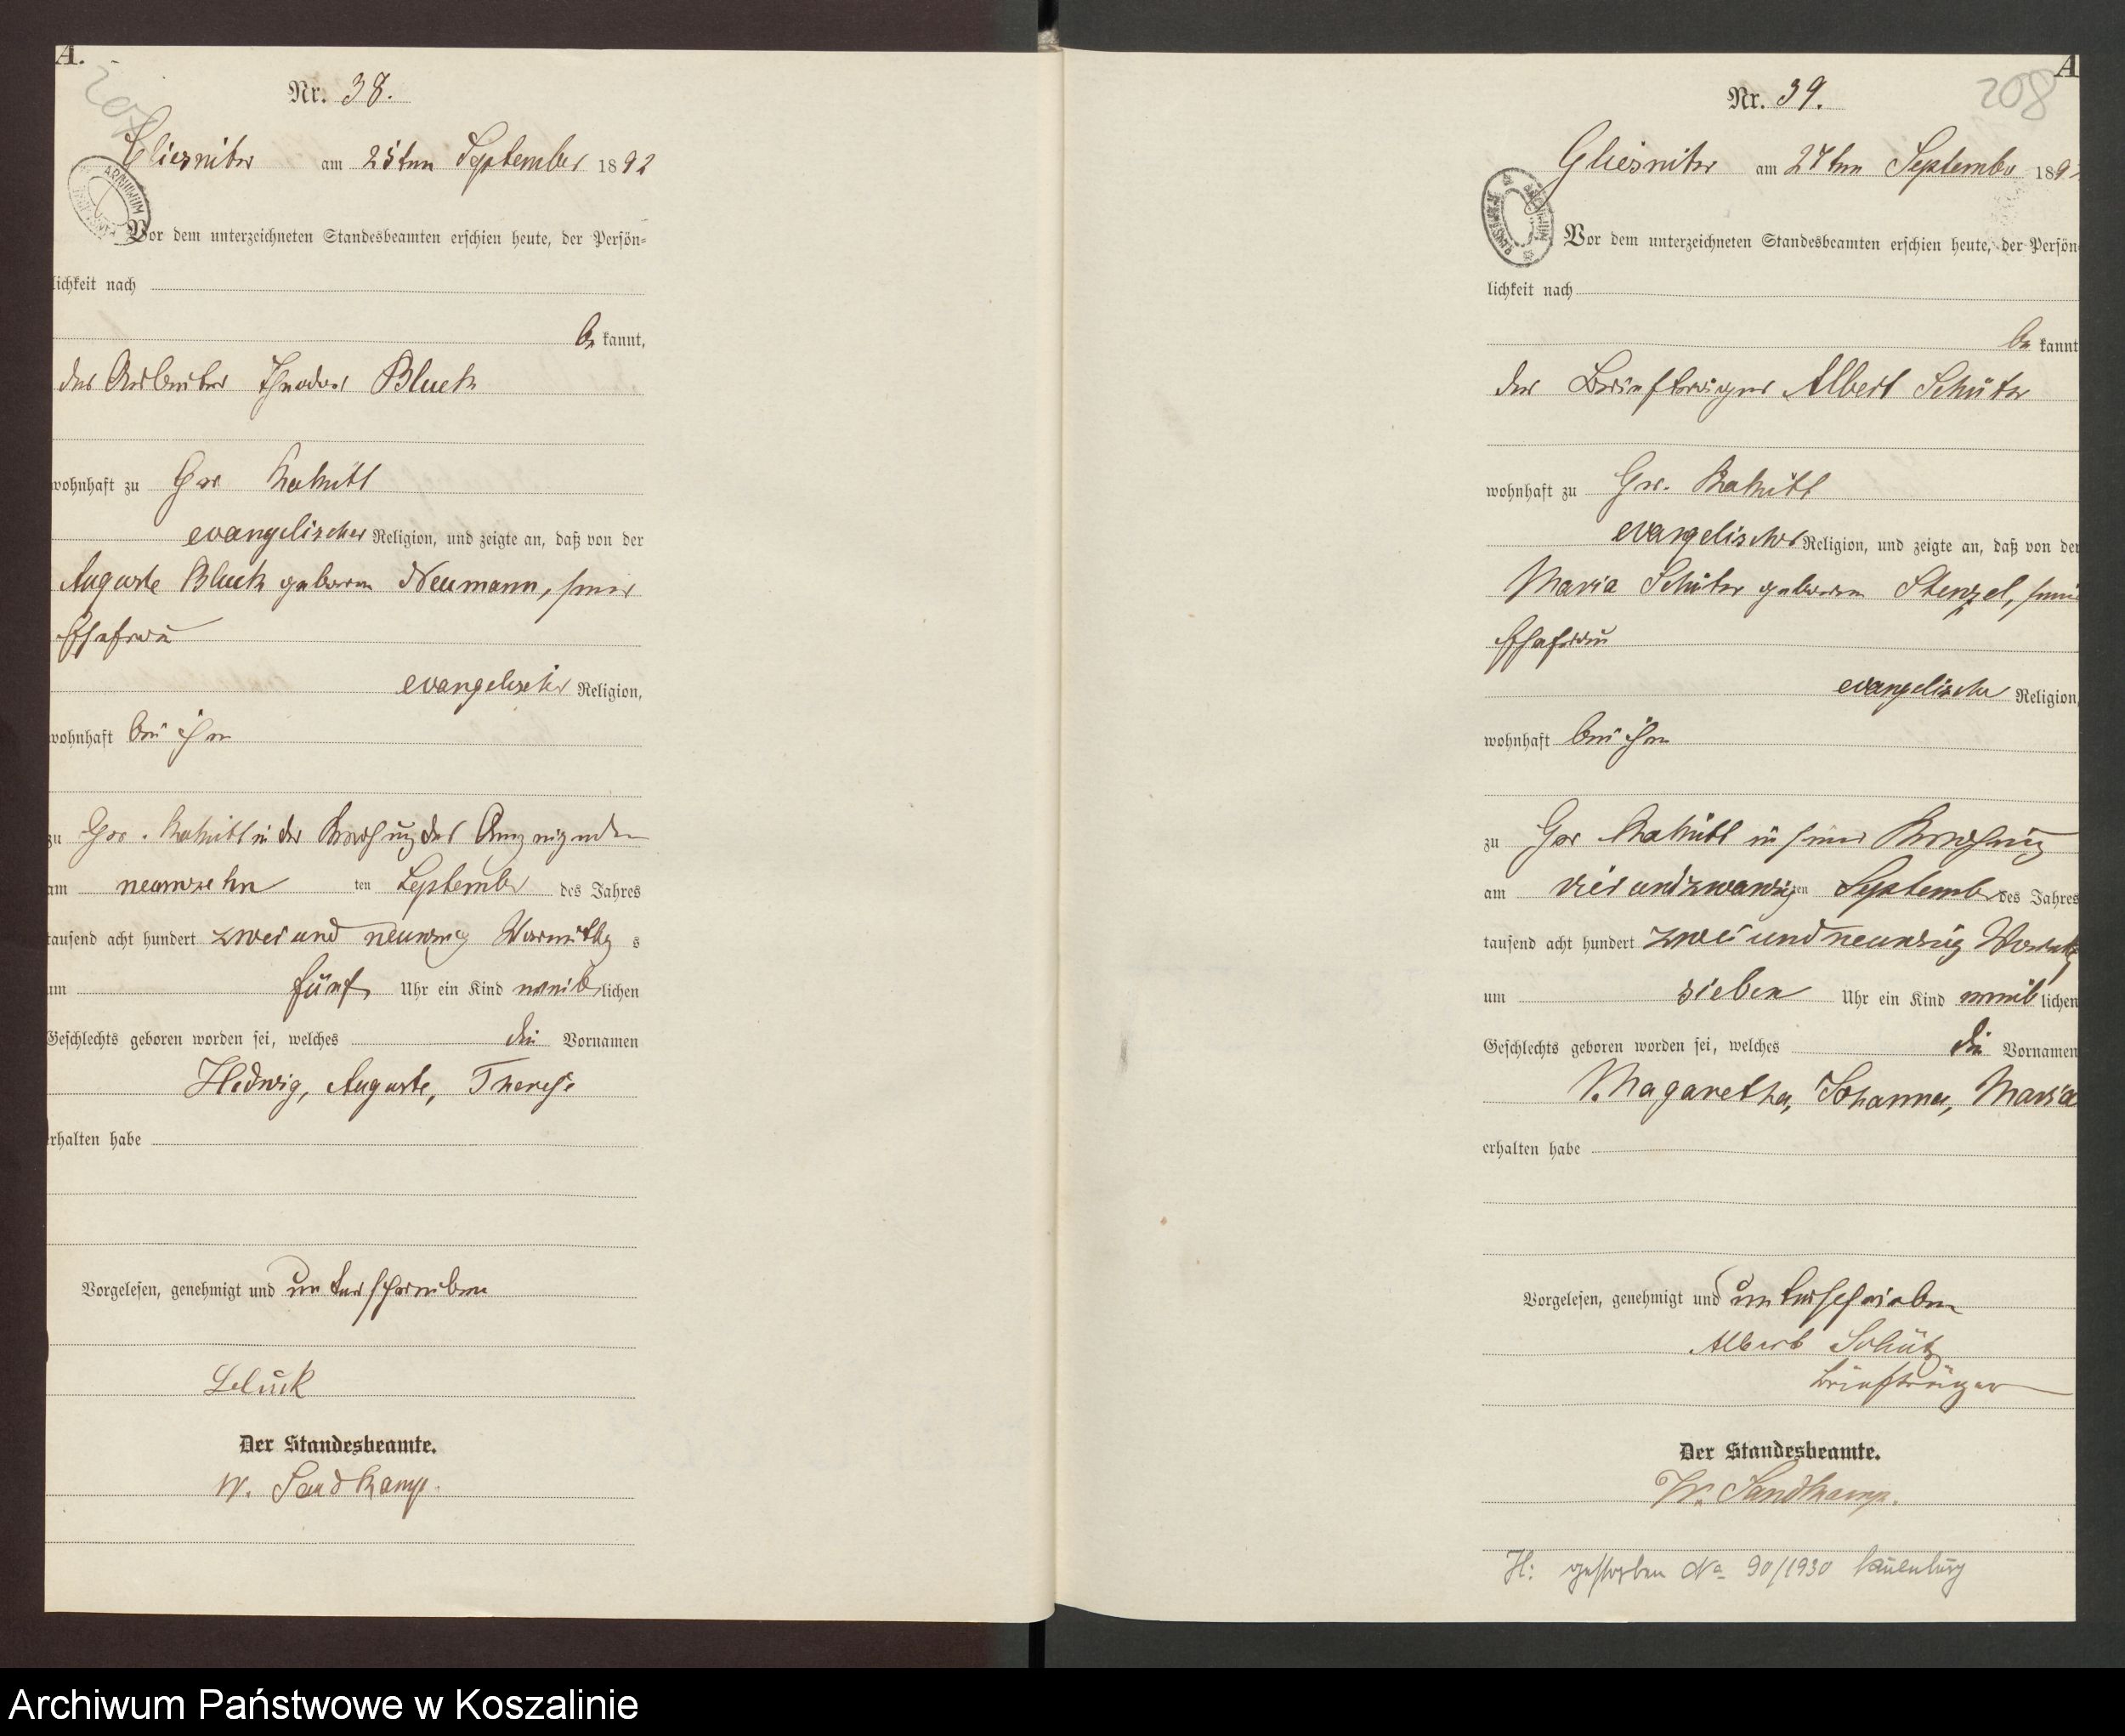 A.
207
Nr. 38.
Gliesnitz am 25ten September 1892
Vor dem unterzeichneten Standesbeamten erschien heute, der Persön=
lichkeit nach
be kannt,
der Arbeiter Theodor Bluck
wohnhaft zu Gr. Rakitt
evangelischer Religion, und zeigte an, daß von der
Auguste Bluck geborne Neumann, seiner
Ehefrau
evangelischer Religion,
wohnhaft bei ihm
zu Gr. Rakitt in der Wohnung des Anzeigenden
am neunzehn ten September des Jahres
tausend acht hundert zwei und neunzig Vormittags
um fünf Uhr ein Kind weiblichen
Geschlechts geboren worden sei, welches die Vornamen
Hedwig, Auguste, Therese
erhalten habe
Vorgelesen, genehmigt und unterschrieben
Bluck
Der Standesbeamte.
W. Sandkamp.
A
208
Nr. 39.
Gliesnitz am 27ten September 189
Vor dem unterzeichneten Standesbeamten erschien heute, der Persön
lichkeit nach
be kannt
der Briefträger Albert Schütz
wohnhaft zu Gr. Rakitt
evangelischer Religion, und zeigte an, daß von der
Maria Schütz geborene Stenzel, seiner
Ehefrau
evangelischer Religion,
wohnhaft bei ihm
zu Gr Rakitt in seiner Wohnung
am vier und zwanzigten September des Jahres
tausend acht hundert zwei und neunzig Vormittags
um sieben Uhr ein Kind weiblichen
Geschlechts geboren worden sei, welches die Vornamen
Magaretha, Johanna, Maria
erhalten habe
Vorgelesen, genehmigt und unterschrieben
Albert Schütz
Briefträger
Der Standesbeamte.
W. Sandkamp.
H: gestorben No 90/1930 Lauenburg
Archiwum Państwowe w Koszalinie